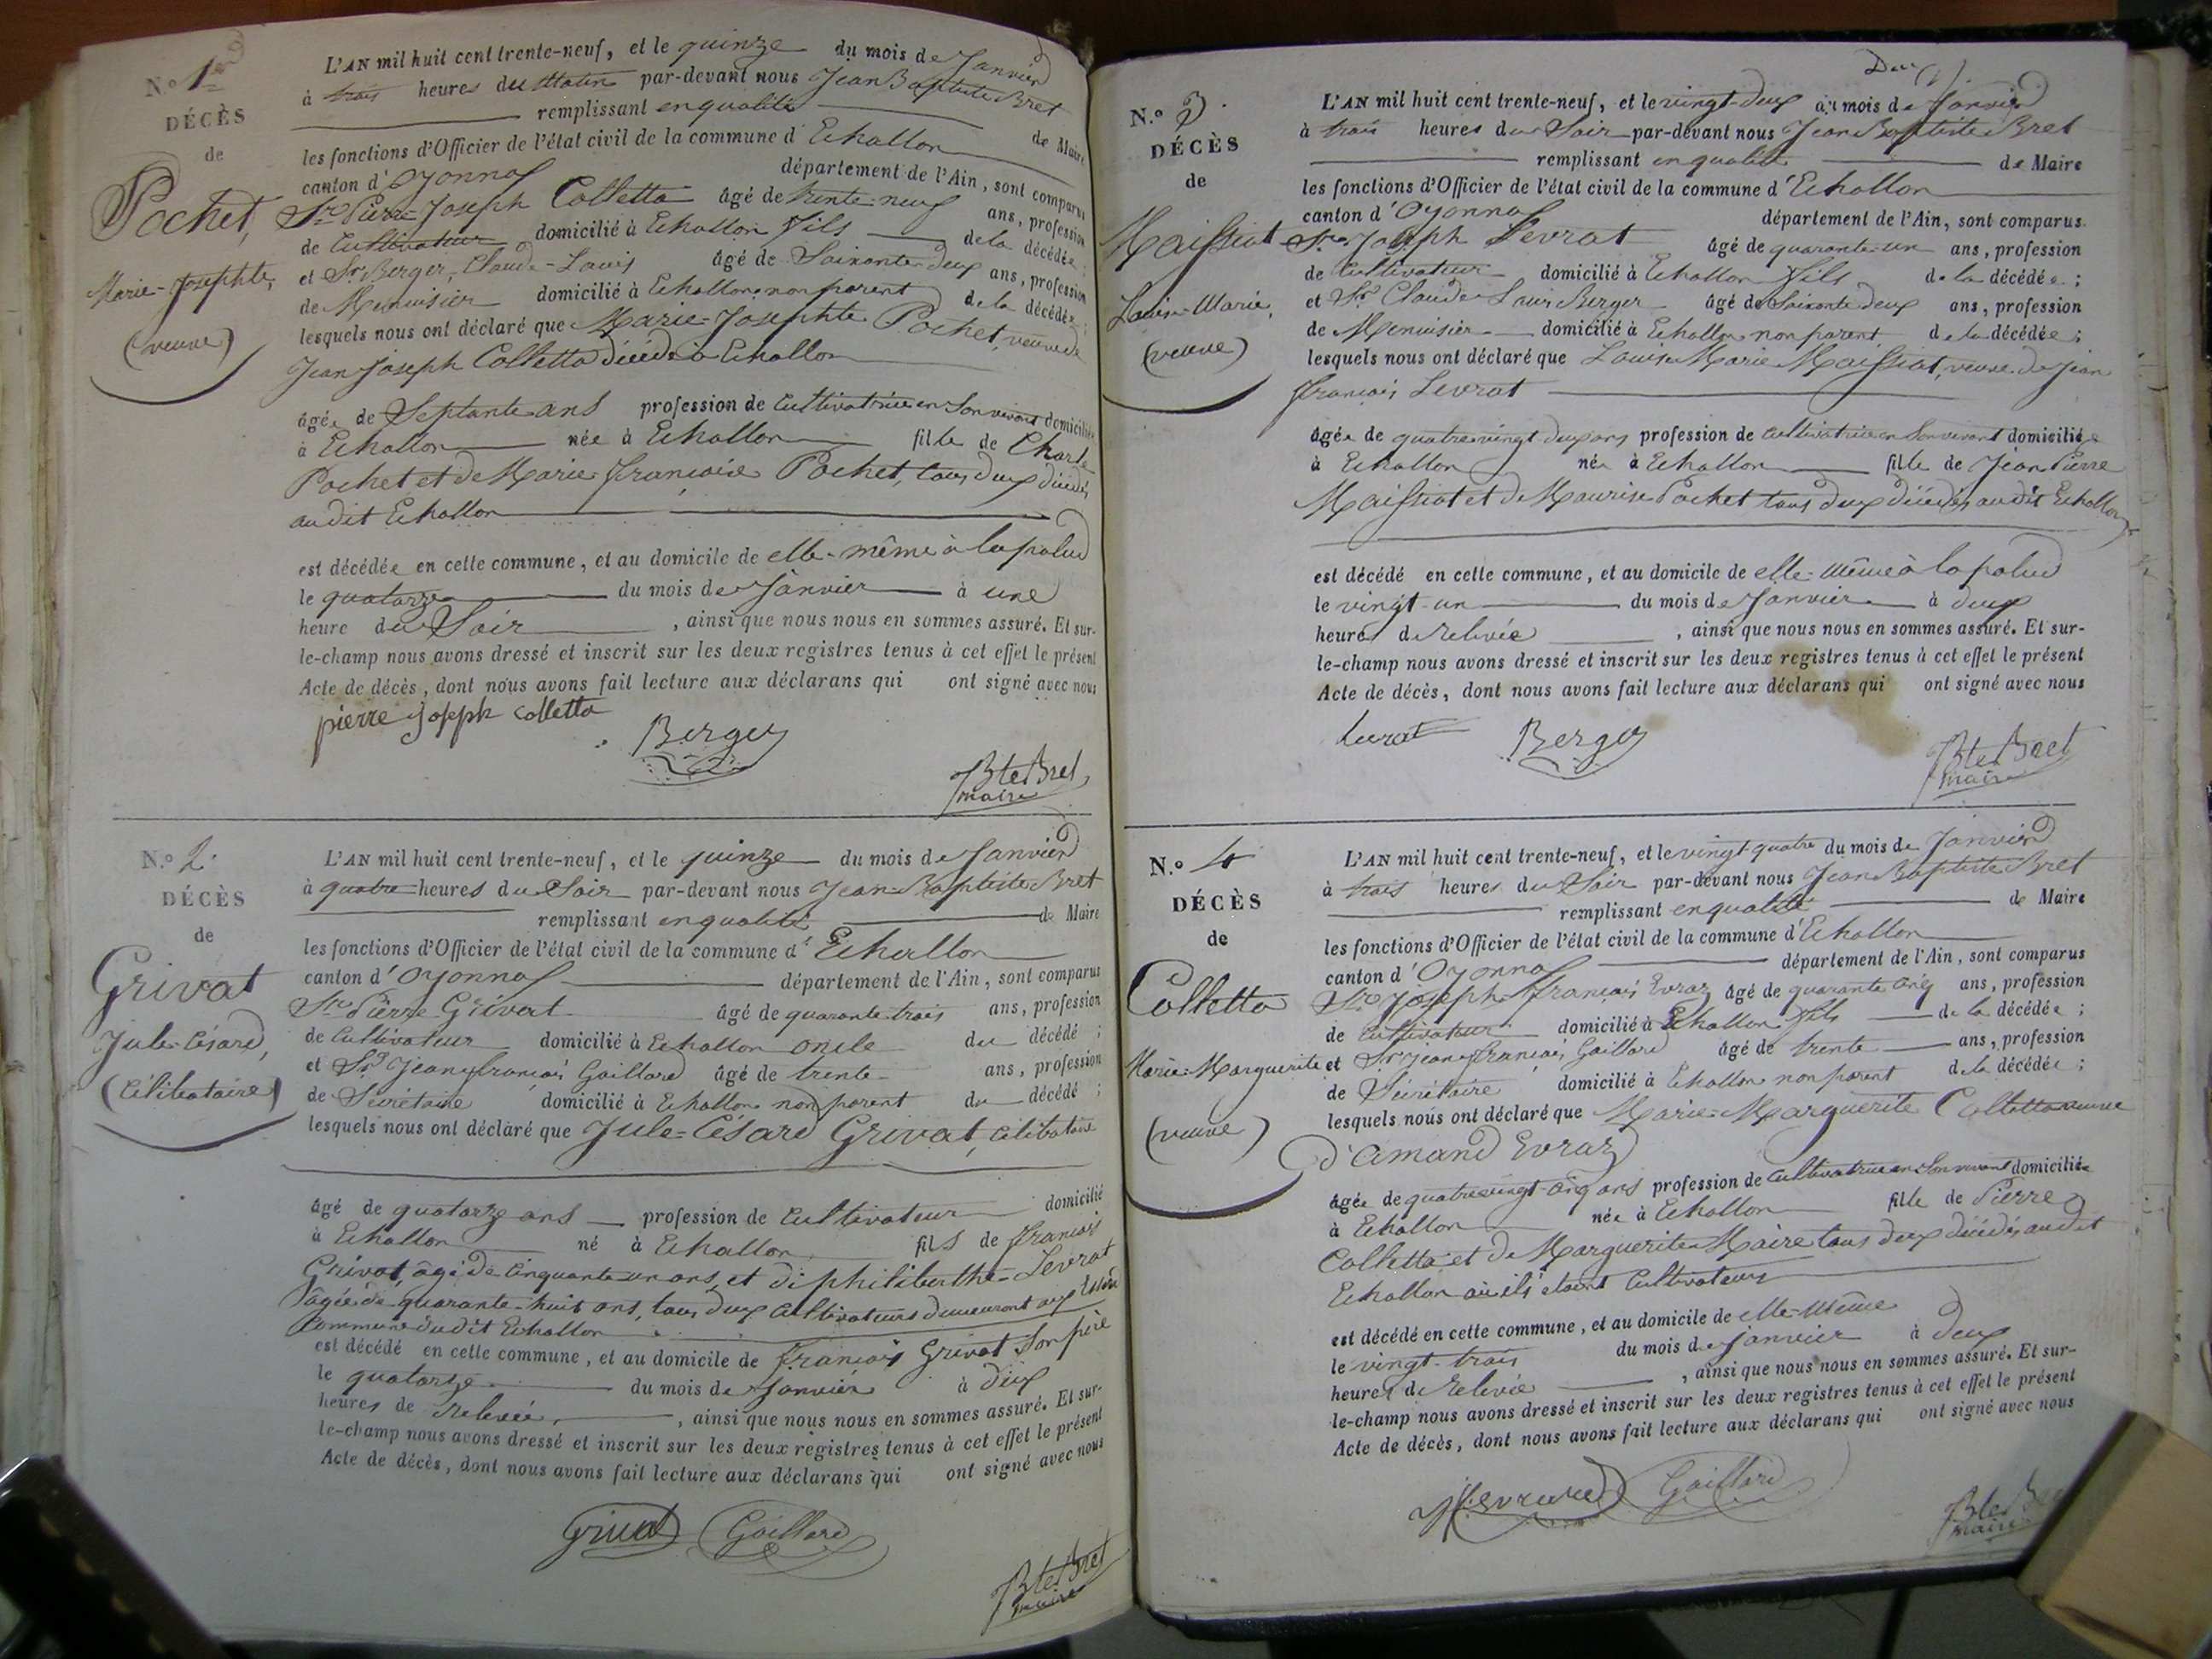 N.º 1er
DÉCÈS
de
Pochet,
Marie-Josephte,
(veuve)
L'AN mil huit cent trente-neuf, et le quinze du mois de Janvier
à trois heures du Matin par-devant nous Jean Baptiste Bret
remplissant en qualité de Maire
les fonctions d'Officier de l'état civil de la commune d'Echallon
canton d'Oyonnax département de l'Ain, sont comparus
Sr Pierre-Joseph Colletta âgé de trente neuf ans, profession
de Cultivateur domicilié à Echallon fils de la décédée;
et Sr Berger, Claude-Louis âgé de Soixante deux ans, profession
de Menuisier domicilié à Echallon non parent de la décédée;
lesquels nous ont déclaré que Marie-Josephte Pochet, veuve de
Jean Joseph Colletta décédé à Echallon
âgée de Septante ans profession de Cultivatrice en Son vivant domiciliée
à Echallon née à Echallon fille de Charle
Pochet et de Marie françoise Pochet, tous deux décédés
au dit Echallon
est décédée en cette commune, et au domicile de elle-même à la palud
le quatorze du mois de Janvier à une
heure du Soir, ainsi que nous nous en sommes assuré. Et sur-
le-champ nous avons dressé et inscrit sur les deux registres tenus à cet effet le présent
Acte de décès, dont nous avons fait lecture aux déclarans qui ont signé avec nous
pierre joseph colletta
Berger
Bte Bret
maire
N.º 2.
DÉCÈS
de
Grivat
Jule-César,
(Célibataire)
L'AN mil huit cent trente-neuf, et le quinze du mois de Janvier
à quatre heures du Soir par-devant nous Jean-Baptiste Bret
remplissant en qualité de Maire
les fonctions d'Officier de l'état civil de la commune d'Echallon
canton d'Oyonnax département de l'Ain, sont comparus
Sr Pierre Grivat âgé de quarante trois ans, profession
de Cultivateur domicilié à Echallon oncle du décédé;
et Sr Jean françois Gaillard âgé de trente ans, profession
de Sécrétaire domicilié à Echallon non parent du décédé;
lesquels nous ont déclaré que Jule-César Grivat, célibataire
âgé de quatorze ans profession de Cultivateur domicilié
à Echallon né à Echallon fils de françois
Grivat, âgé de Cinquante un ans, et de philiberthe Levrat
âgée de quarante-huit ans, tous deux Cultivateurs demeurant aux
Commune du dit Echallon
est décédé en cette commune, et au domicile de françois Grivat Son père
le quatorze du mois de Janvier à dix
heures de Relevée, ainsi que nous nous en sommes assuré. Et sur-
le-champ nous avons dressé et inscrit sur les deux registres tenus à cet effet le présent
Acte de décès, dont nous avons fait lecture aux déclarans qui ont signé avec nous
Grivat Gaillard
Bte Bret
maire
N.º 3.
DÉCÈS
de
Maissiat
Louise-Marie,
(veuve)
L'AN mil huit cent trente-neuf, et le vingt-deux du mois de Janvier
à trois heures du Soir par-devant nous Jean Baptiste Bret
remplissant en qualité de Maire
les fonctions d'Officier de l'état civil de la commune d'Echallon
canton d'Oyonnax département de l'Ain, sont comparus
Sr Joseph Levrat âgé de quarante-un ans, profession
de Cultivateur domicilié à Echallon fils de la décédée;
et Sr Claude Louis Berger âgé de Soixante deux ans, profession
de Menuisier domicilié à Echallon non parent de la décédée;
lesquels nous ont déclaré que Louise Marie Maissiat, veuve de Jean
françois Levrat
âgée de quatre vingt deux ans profession de Cultivatrice en Son vivant domiciliée
à Echallon née à Echallon fille de Jean Pierre
Maissiat et de Maurise Pochet tous deux décédés au dit Echallon
est décédé en cette commune, et au domicile de elle-même à la palud
le vingt-un du mois de Janvier à deux
heures de Relevée, ainsi que nous nous en sommes assuré. Et sur-
le-champ nous avons dressé et inscrit sur les deux registres tenus à cet effet le présent
Acte de décès, dont nous avons fait lecture aux déclarans qui ont signé avec nous
Levrat Berger
Bte Bret
maire
N.º 4
DÉCÈS
de
Colletta
Marie-Marguerite
(veuve)
L'AN mil huit cent trente-neuf, et le vingt quatre du mois de Janvier
à trois heures du Soir par-devant nous Jean Baptiste Bret
remplissant en qualité de Maire
les fonctions d'Officier de l'état civil de la commune d'Echallon
canton d'Oyonnax département de l'Ain, sont comparus
Sr Joseph-françois Evraz âgé de quarante cinq ans, profession
de Cultivateur domicilié à Echallon fils de la décédée;
et Sr Jean françois Gaillard âgé de trente ans, profession
de Sécrétaire domicilié à Echallon non parent de la décédée;
lesquels nous ont déclaré que Marie-Marguerite Colletta veuve
d'Amand Evraz
âgée de quatre vingt-cinq ans profession de Cultivatrice en Son vivant domiciliée
à Echallon née à Echallon fille de Pierre
Colletta et de Marguerite Maire tous deux décédés au dit
Echallon où ils étaient Cultivateurs
est décédé en cette commune, et au domicile de elle-même
le vingt-trois du mois de Janvier à deux
heures de Relevée, ainsi que nous nous en sommes assuré. Et sur-
le-champ nous avons dressé et inscrit sur les deux registres tenus à cet effet le présent
Acte de décès, dont nous avons fait lecture aux déclarans qui ont signé avec nous
Gaillard
Bte
maire